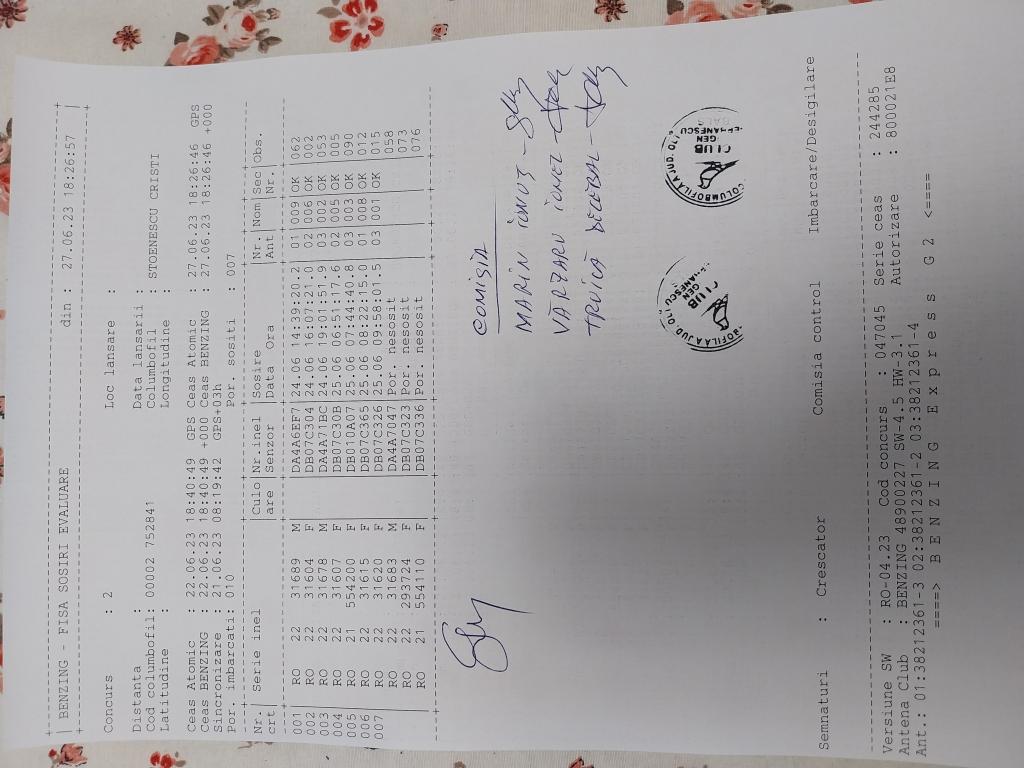 BENZING - FISA SOSIRI EVALUARE din : 27.06.23 18:26:57
Concurs : 2 Loc lansare :
Distanta : Data lansarii :
Cod columbofil: 00002 752841 Columbofil : STOENESCU CRISTI
Latitudine : Longitudine :
Ceas Atomic : 22.06.23 18:40:49 GPS Ceas Atomic : 27.06.23 18:26:46 GPS
Ceas BENZING : 22.06.23 18:40:49 +000 Ceas BENZING : 27.06.23 18:26:46 +000
Sincronizare : 21.06.23 08:19:42 GPS+03h
Por. imbarcati: 010 Por. sositi : 007
Nr.| Serie inel |Culo|Nr.inel |Sosire |Nr. |Nom|Sec|Obs.
crt| |are |Senzor |Data Ora |Ant | |Nr.|
001 | RO 22 31689 M | |DA4A6EF7|24.06 14:39:20.2| 01 |009|OK | 062
002 | RO 22 31604 F | |DB07C304|24.06 16:07:21.3| 02 |006|OK | 002
003 | RO 22 31678 M | |DA4A71BC|24.06 17:01:11.9| 03 |002|OK | 053
004 | RO 22 31607 F | |DB07C10B|25.06 06:51:17.6| 02 |005|OK | 005
005 | RO 21 554200 F | |DB010A07|25.06 07:44:40.8| 03 |003|OK | 090
006 | RO 22 31615 F | |DB07C365|25.06 08:22:15.0| 01 |008|OK | 012
007 | RO 22 31620 F | |DB07C326|25.06 09:58:01.5| 03 |001|OK | 015
| RO 22 31683 M | |DA4A7047|Por. nesosit | 058
| RO 22 293724 F | |DB07C323|Por. nesosit | 073
| RO 21 554110 F | |DB07C336|Por. nesosit | 076
COMISIA
MARIN IONUȚ -
VĂRZARU IONEL -
CLUB
GEN
Semnaturi : Crescator Comisia control Imbarcare/Desigilare
Versiune SW : RO-04.23 Cod concurs : 047045 Serie ceas : 244285
Antena Club : BENZING 48900227 SW-4.5 HW-3.1 Autorizare : 800021E8
Ant.: 01:38212361-3 02:38212361-2 03:38212361-4
====> B E N Z I N G E x p r e s s G 2 <====